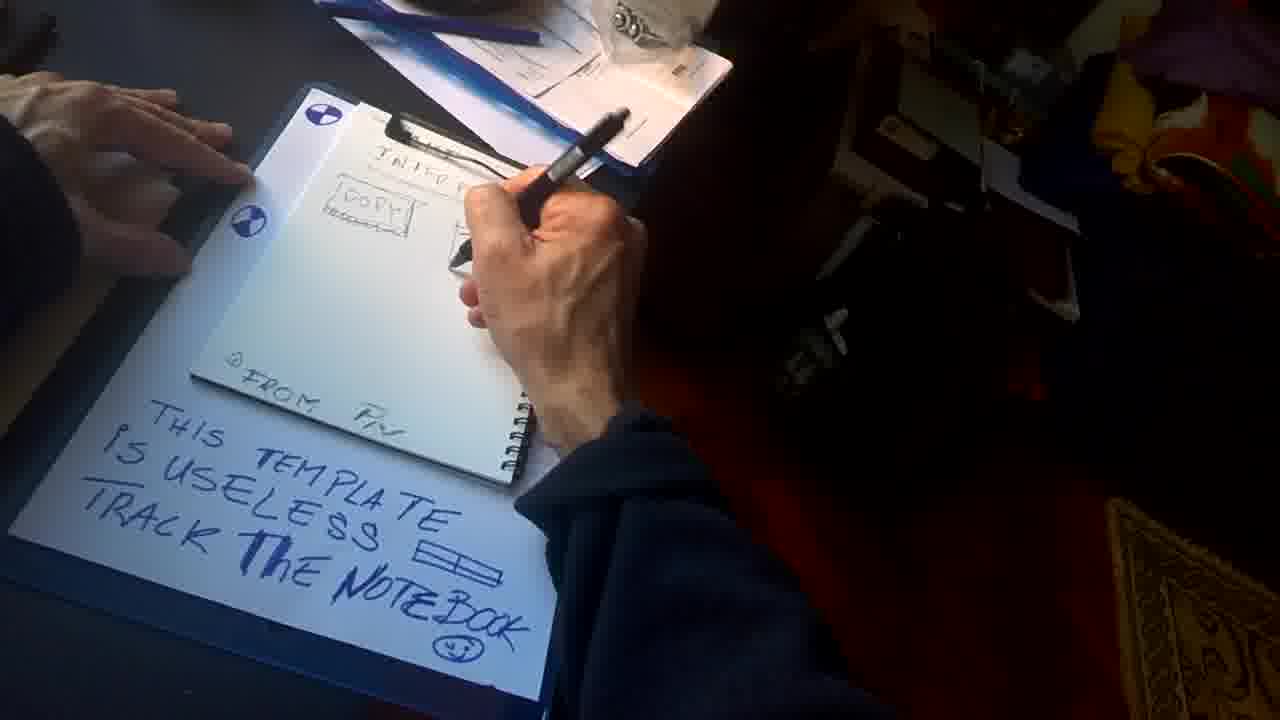 COPY
FROM
THIS TEMPLATE
iS USELESS
TRACK THE NOTEBOOK